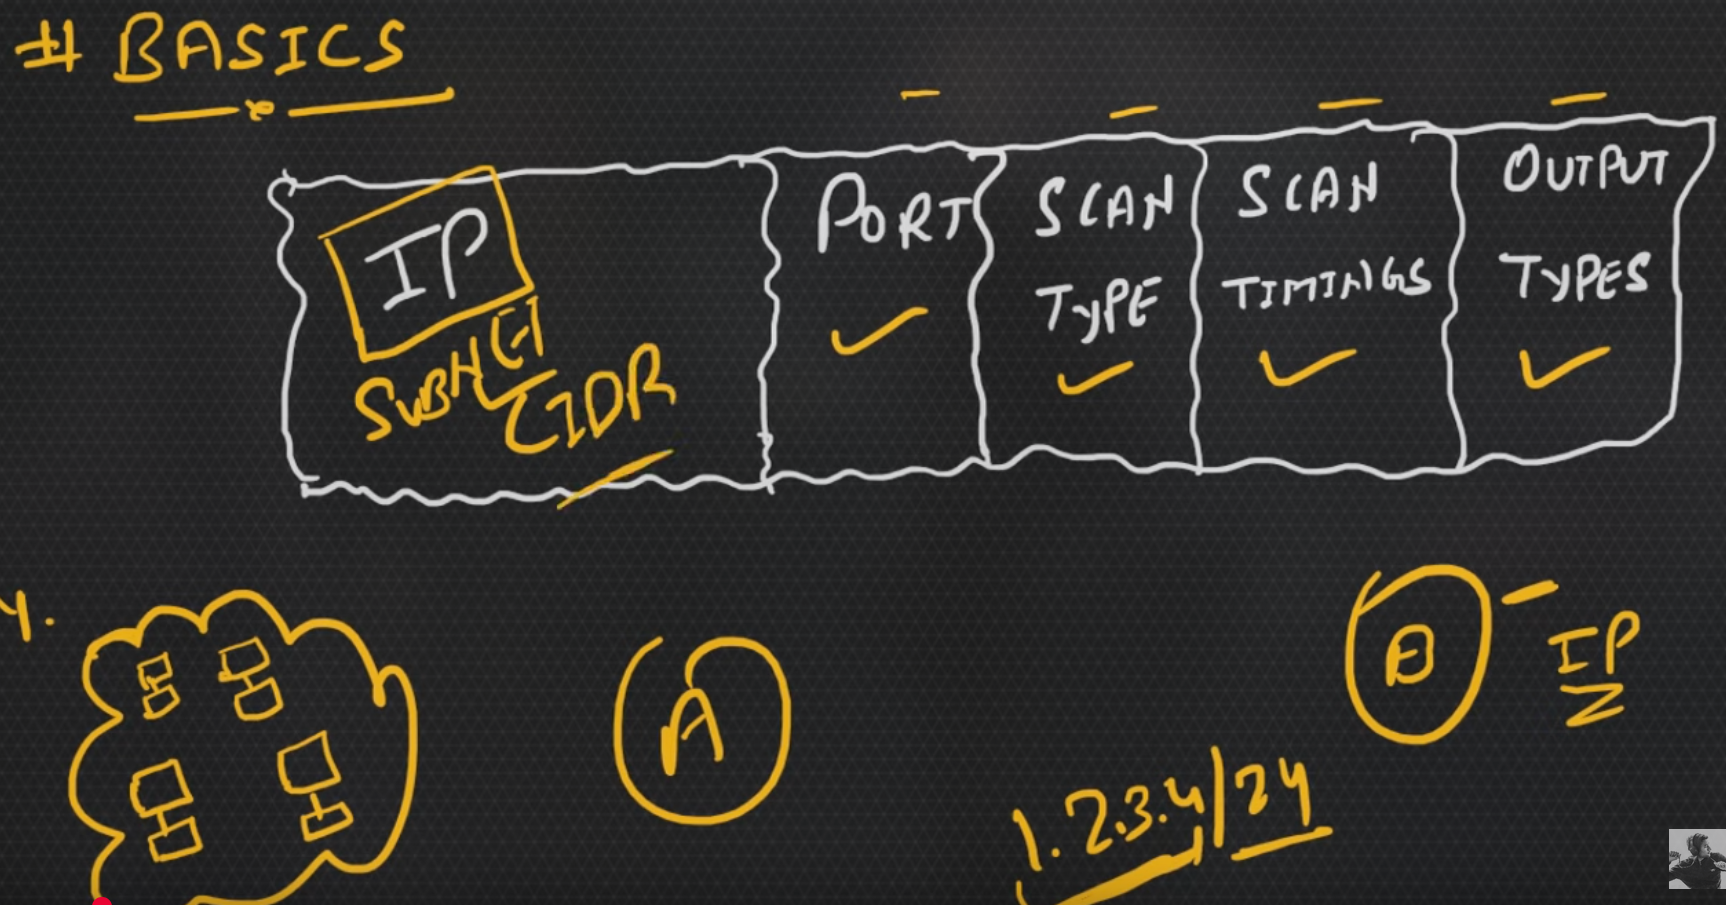 # BASICS
IP
SUBNET
CIDR
PORT
SCAN
TYPE
SCAN
TIMINGS
OUTPUT
TYPES
4.
A
B
IP
1.2.3.4/24